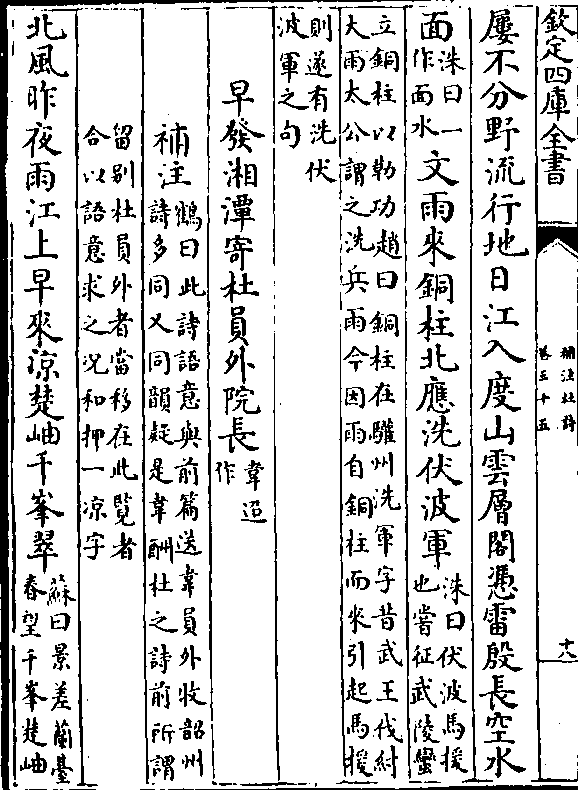 欽定四庫全書
補注杜詩
卷三十五
十八
屢不分野流行地日江入度山雲層閣憑雷殷長空水
面洙曰一作面水文雨來銅柱北應洗伏波軍洙曰伏波馬援也嘗征武陵蠻
立銅柱以勒功趙曰銅柱在驩州洗軍字昔武王伐紂
大雨太公謂之洗兵雨今因雨自銅柱而來引起馬援
則遂有洗伏
波軍之句
早發湘潭寄杜員外院長韋迢作
補注鶴曰此詩語意與前篇送韋員外牧韶州
詩多同又同韻疑是韋酬杜之詩前所謂
留別杜員外者當移在此覽者
合以語意求之况和押一凉字
北風昨夜雨江上早來涼楚岫千峯翠蘇曰景差蘭臺春望千峯楚岫